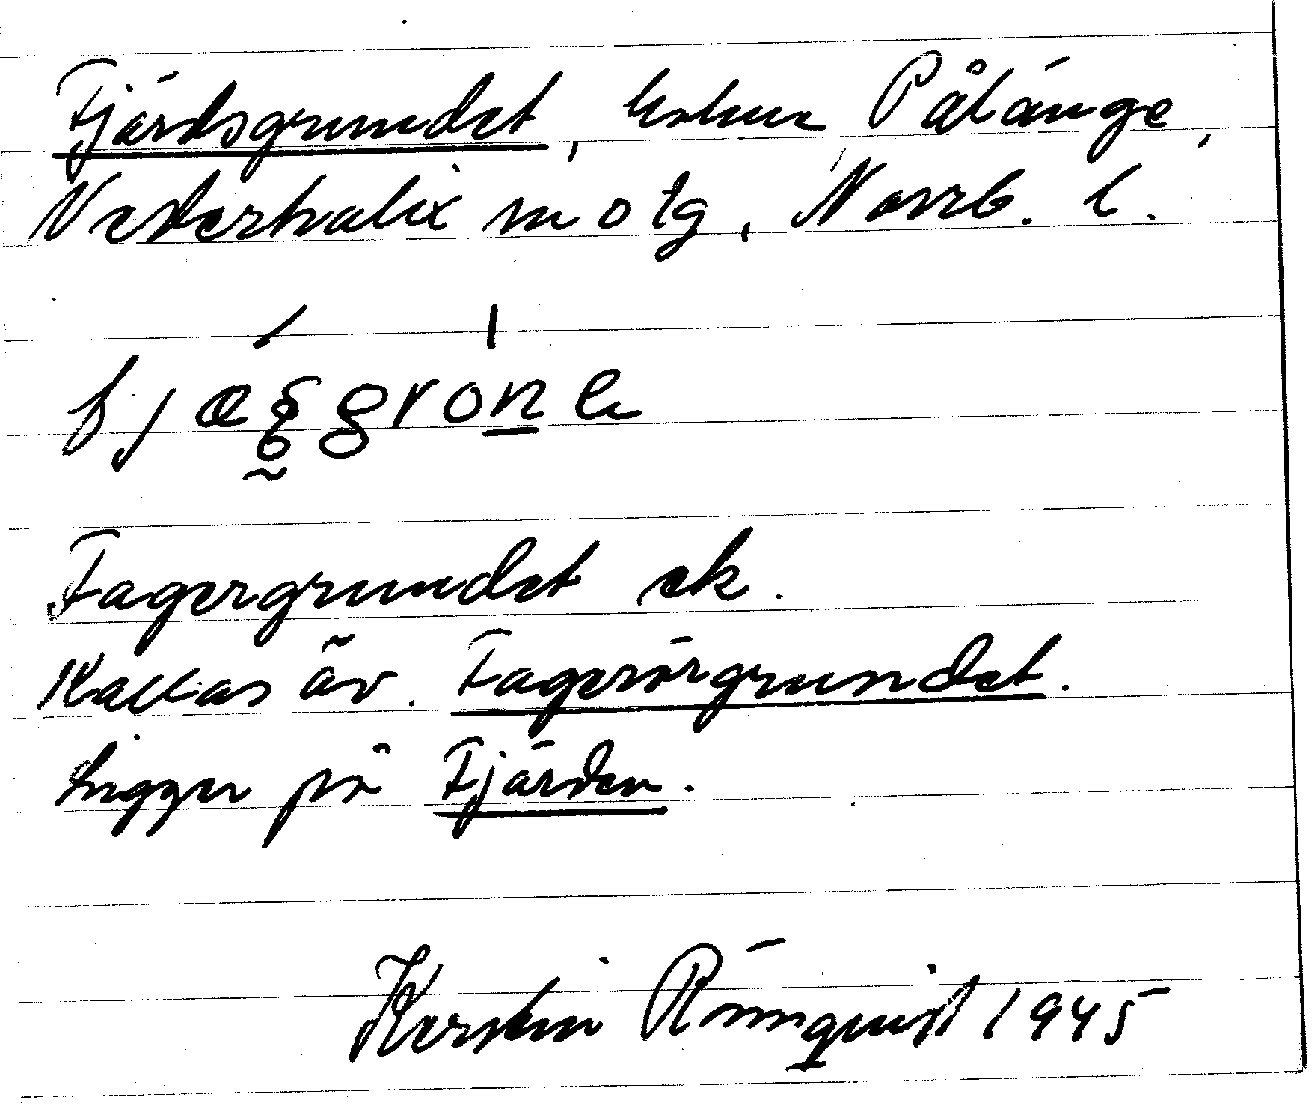 Fjärdsgrundet, holme Pålänge,
Nederkalix sn o tg, Norrb. l.
Fagergrundet ek.
Kallas äv. Fagerörgrundet.
Ligger på Fjärden.
Kerstin Rönnquist 1945